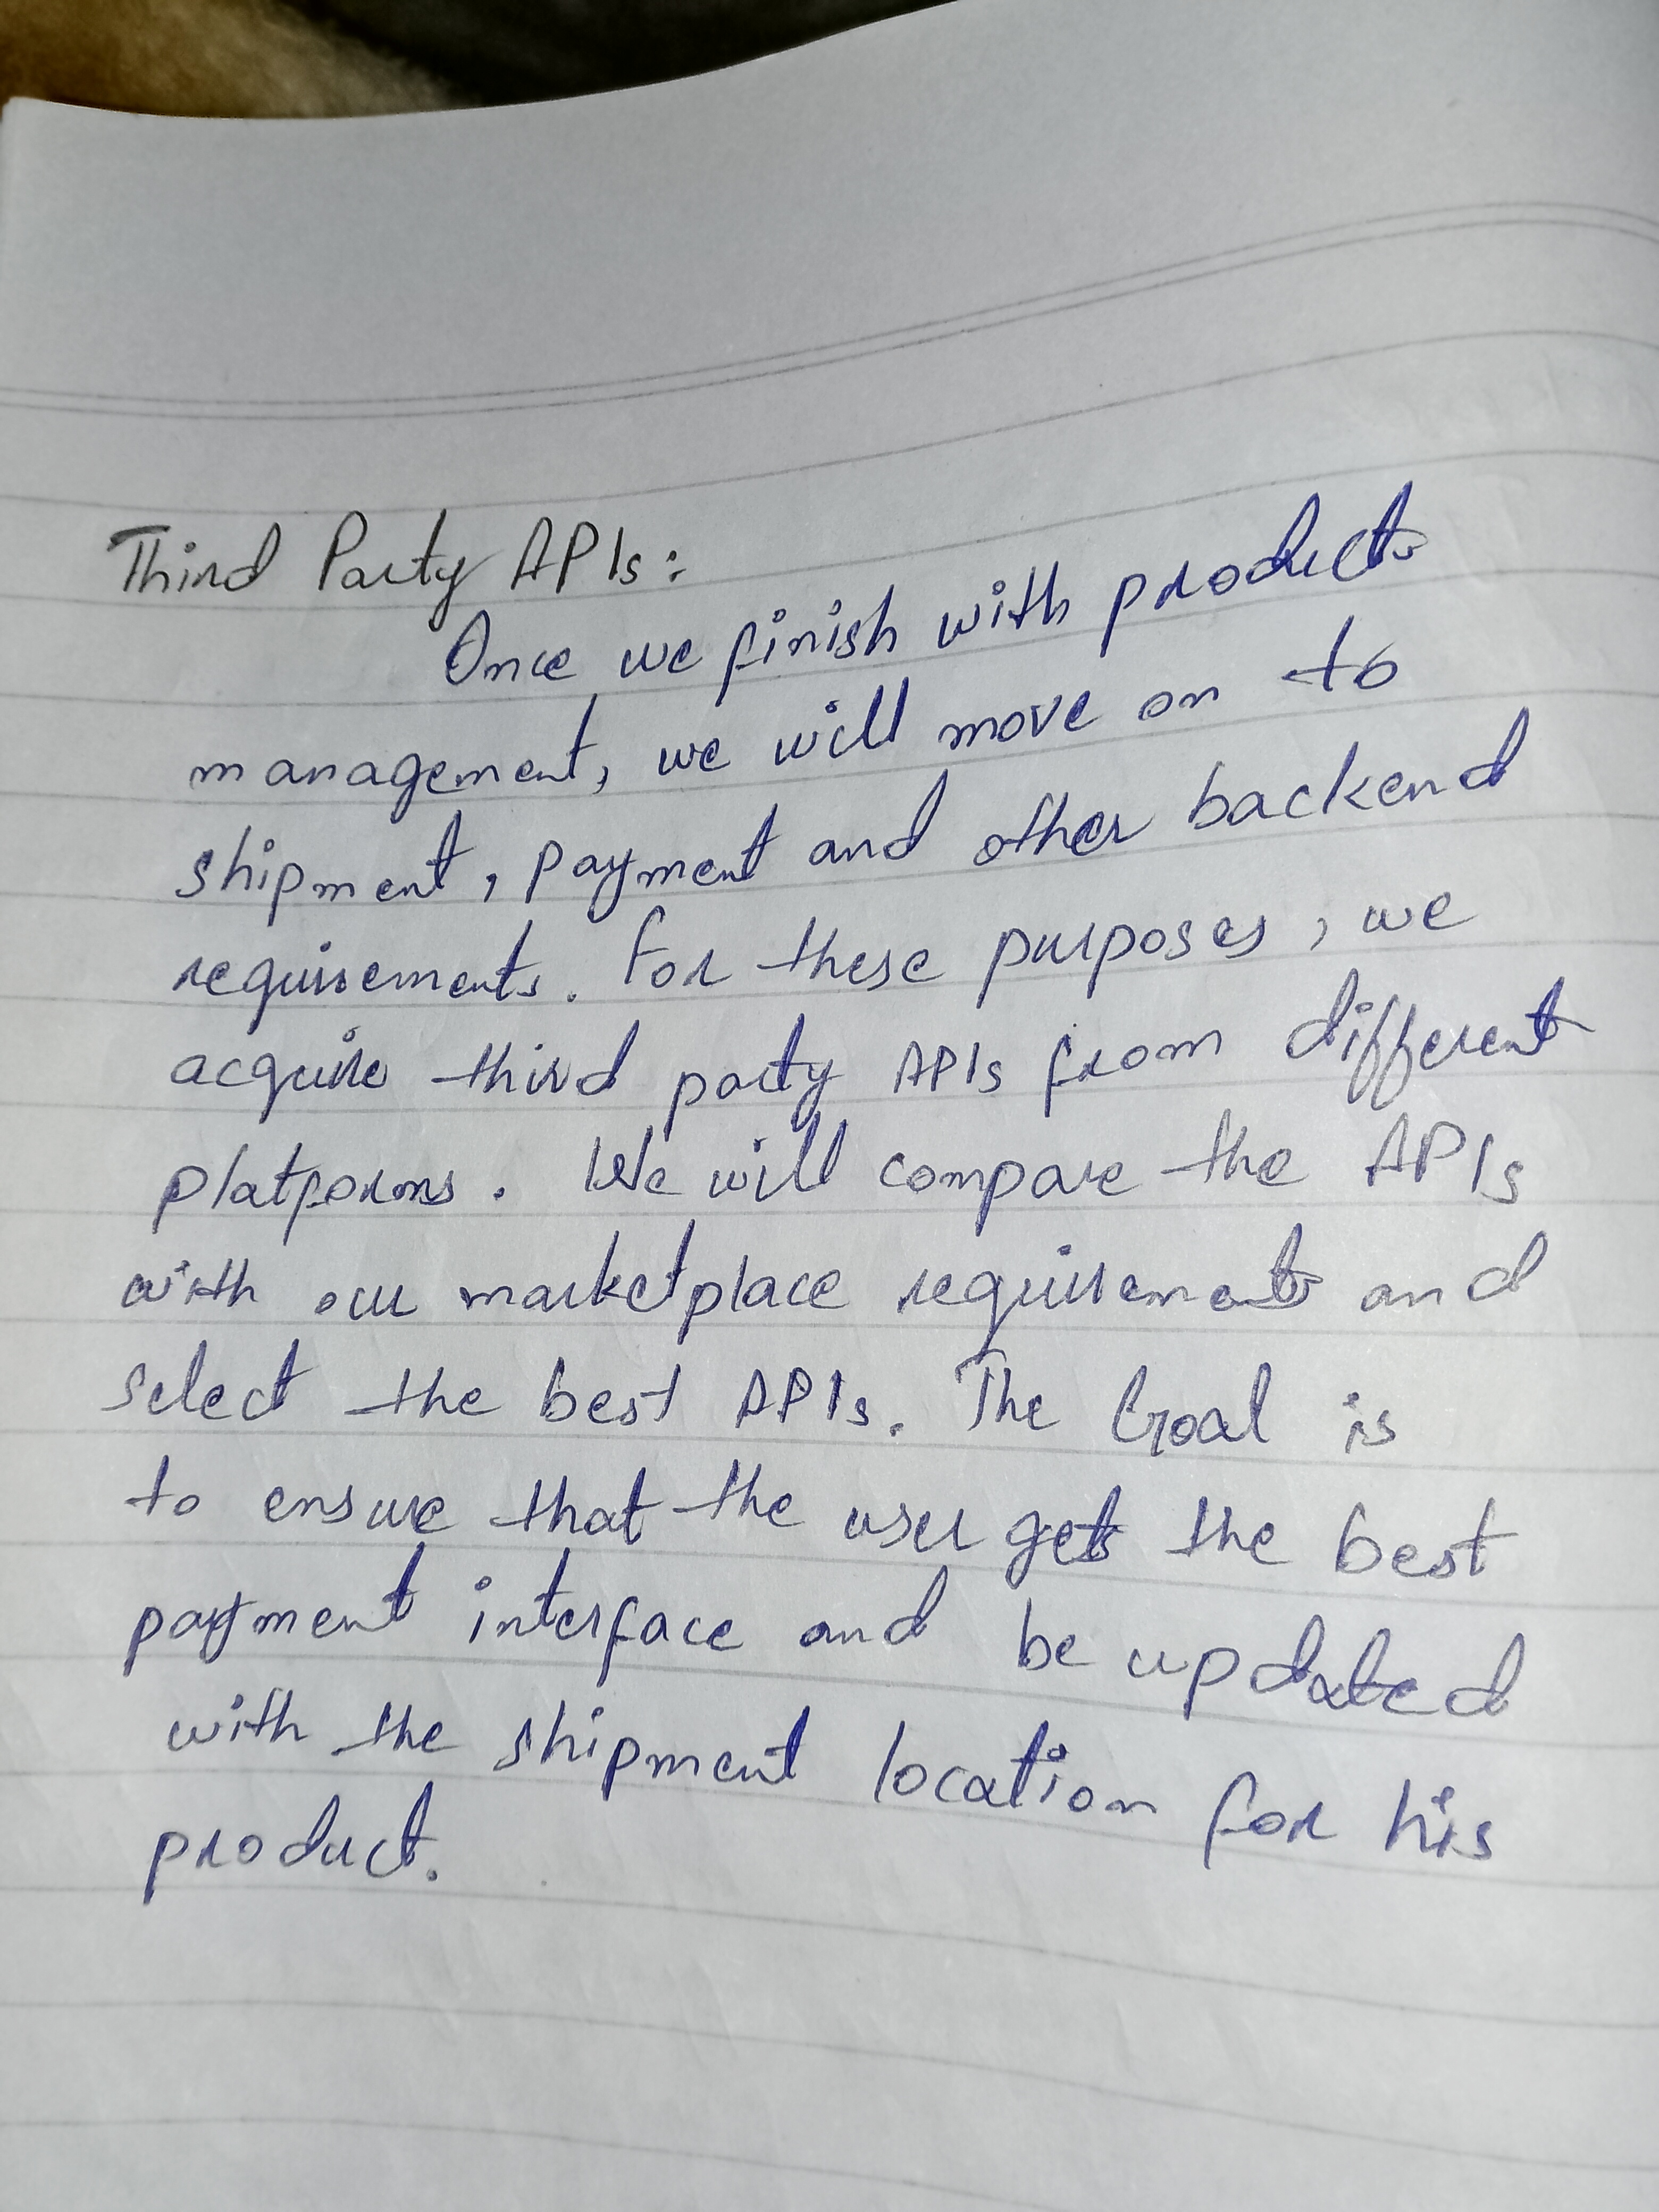 Third Party APIs:
Once we finish with products
management, we will move on to
shipment, payment and other backend
requirements. For these purposes, we
acquire third party APIs from different
platforms. We will compare the APIs
with our marketplace requirements and
select the best APIs. The Goal is
to ensure that the user gets the best
payment interface and be updated
with the shipment location for his
product.